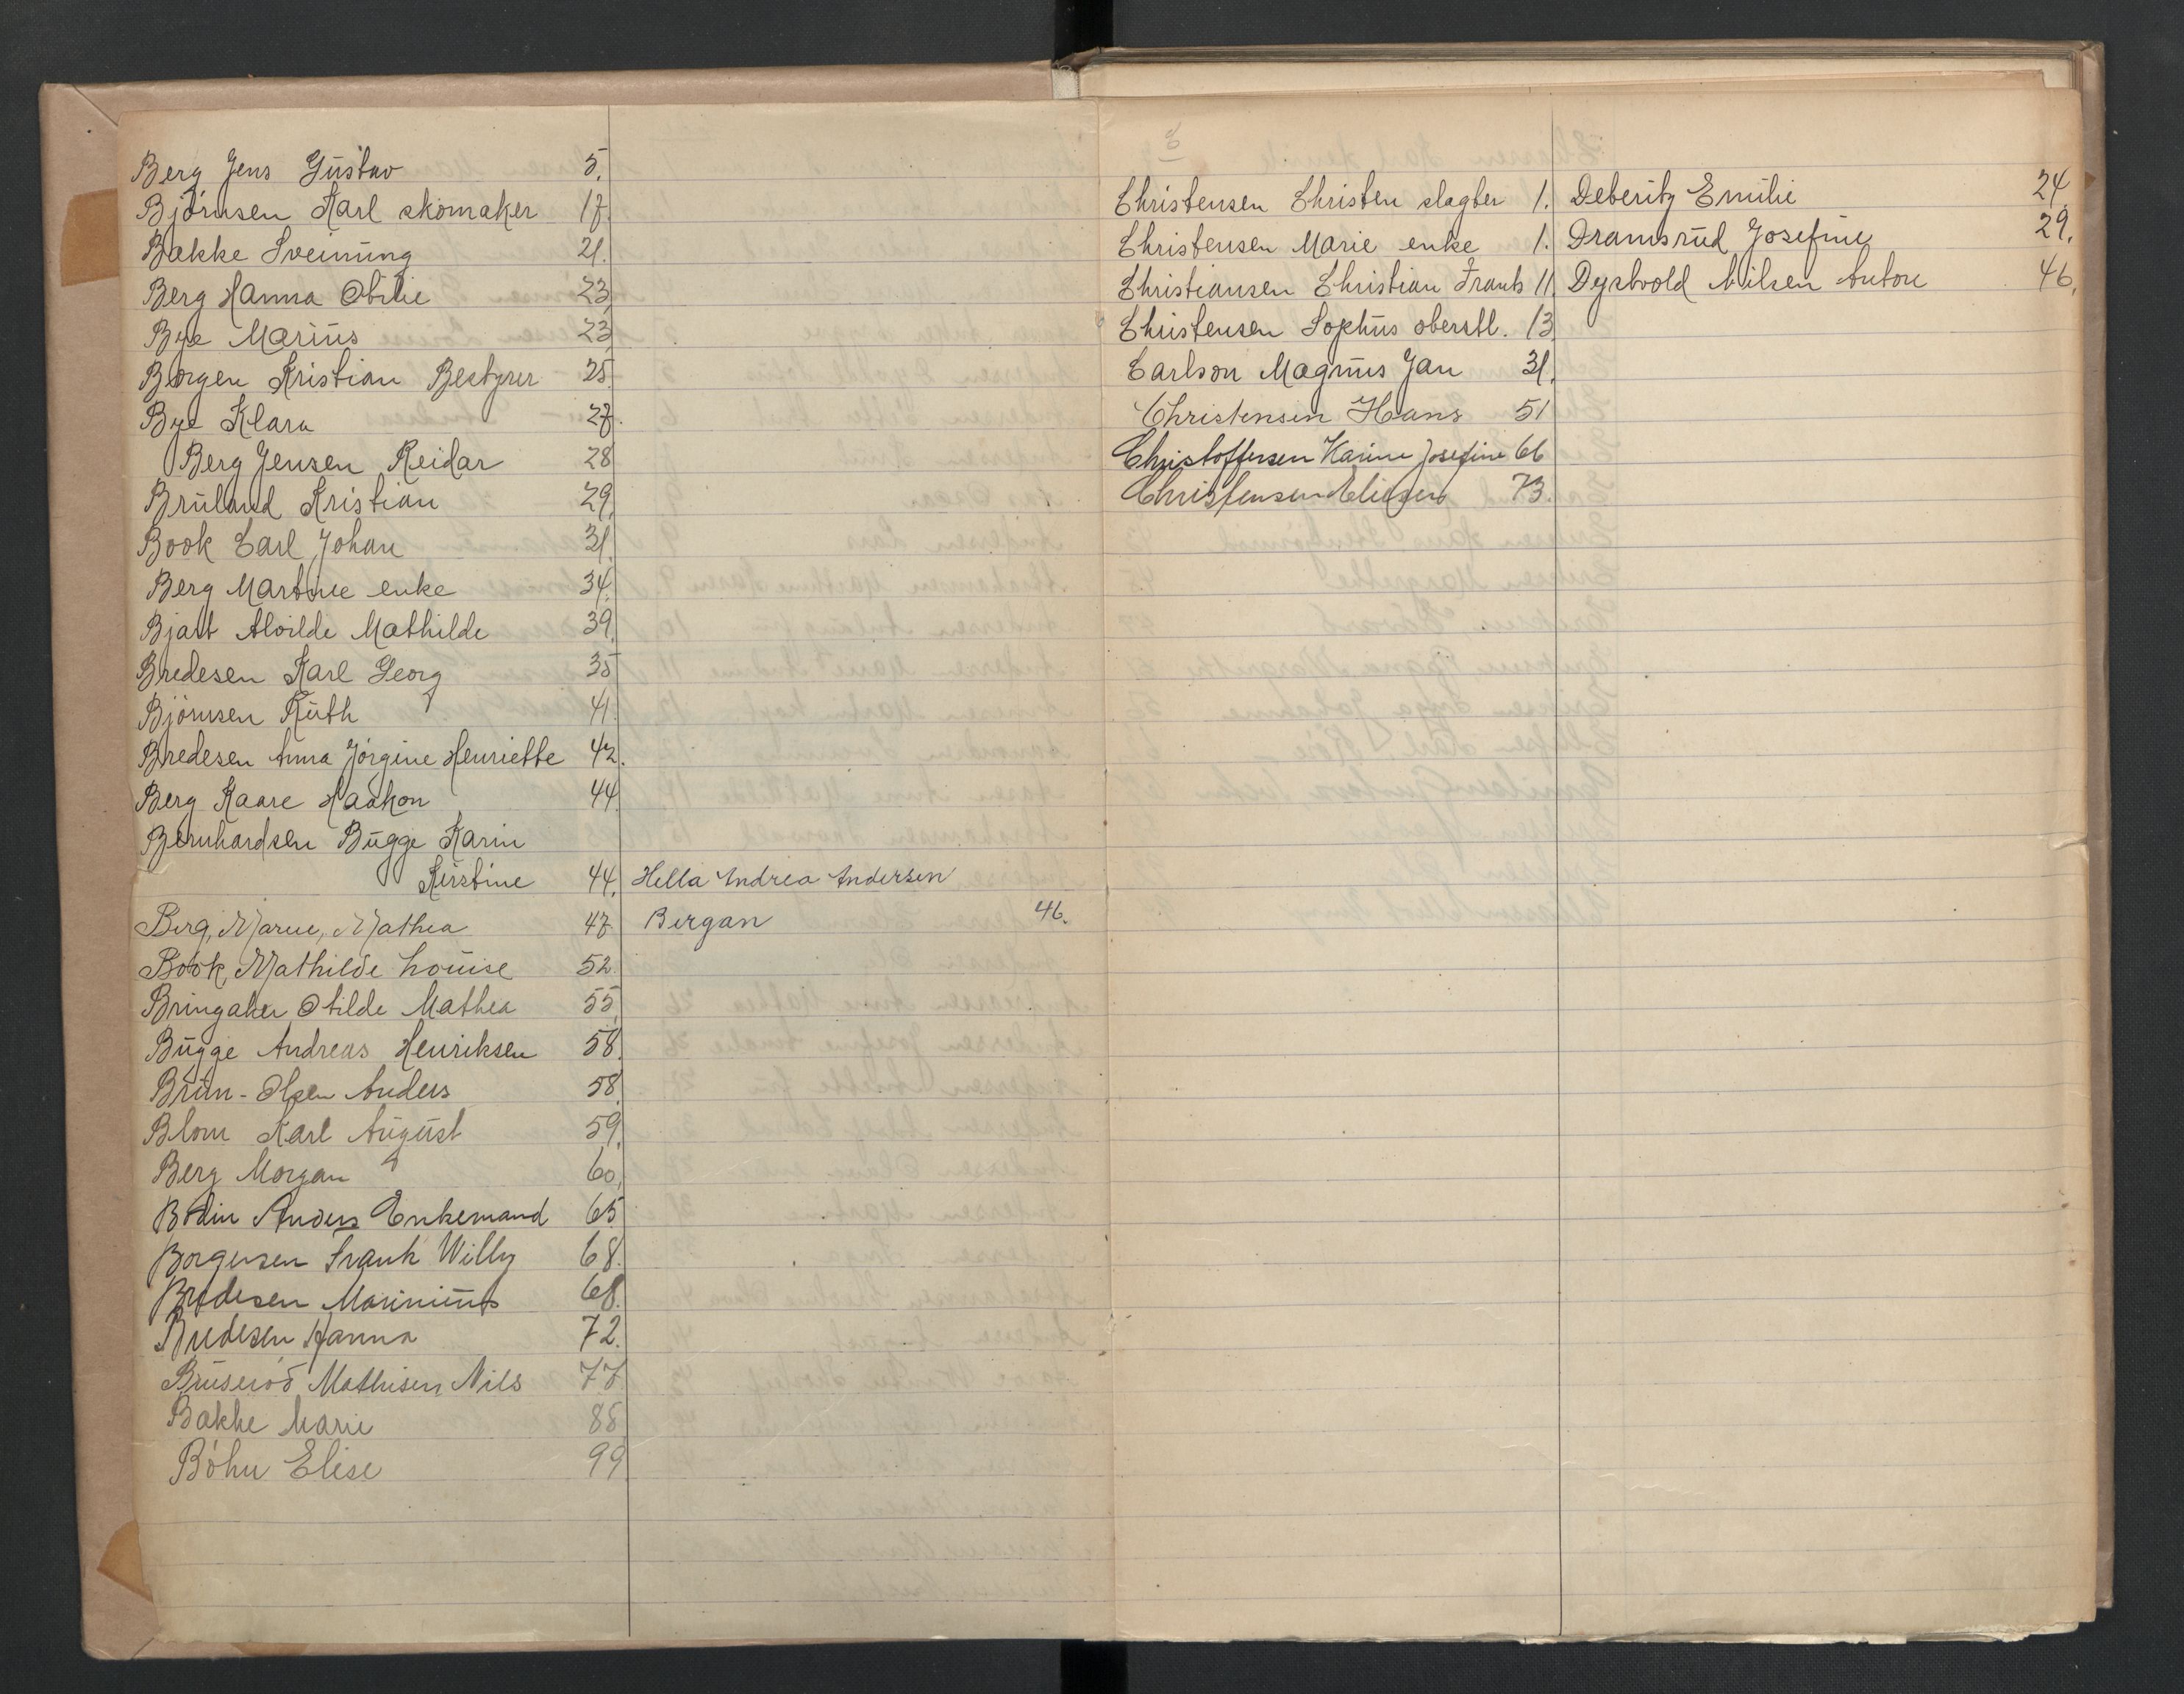 Berg Jens Gustav 5.
Björnsen Karl skomaker 17
Bakke Sveinung 21.
Berg Hanna Otilie 23
Bye Marius 23
Borgen Kristian Bestyrer 25
Bye Klara 27.
Berg Jensen Reidar 28
Bruland Kristian 29.
Book Carl Johan 31.
Berg Martine enke 34.
Bjart Alvilde Mathilde 39.
Bredesen Karl Georg 35
Björnsen Ruth 41.
Bredesen Anna Jörgine Henriette 42.
Berg Kaare Haakon 44.
Bernhardsen Bugge Karin
Kirstine 44.
Berg, Marie, Mathea 47
Book, Mathilde Louise 52.
Bringaker Otilde Mathea 55.
Bugge Andreas Henriksen 58.
Brun-Olsen Anders 58.
Blom Karl August 59.
Berg Morgan 60.
Bodin Anders Enkemand 65
Borgersen Frank Willy 68.
Bredesen Marinius 68.
Bredesen Hanna 72.
Bruseröd Mathisen Nils 77
Bakke Marie 88
Böhn Elise 99
Hella Andrea Andersen
Bergan 46.
C
Christensen Christen slagter 1.
Christensen Marie enke 1.
Christiansen Christian Frants 11.
Christensen Sophus oberstl. 13
Carlson Magnus Jan 31.
Christensen Hans 51
Christoffersen Karine Josefine 66
Christensen Eliesen 73.
Deberitz Emilie 24.
Dramsrud Josefine 29.
Dystvold Nilsen Antore 46.